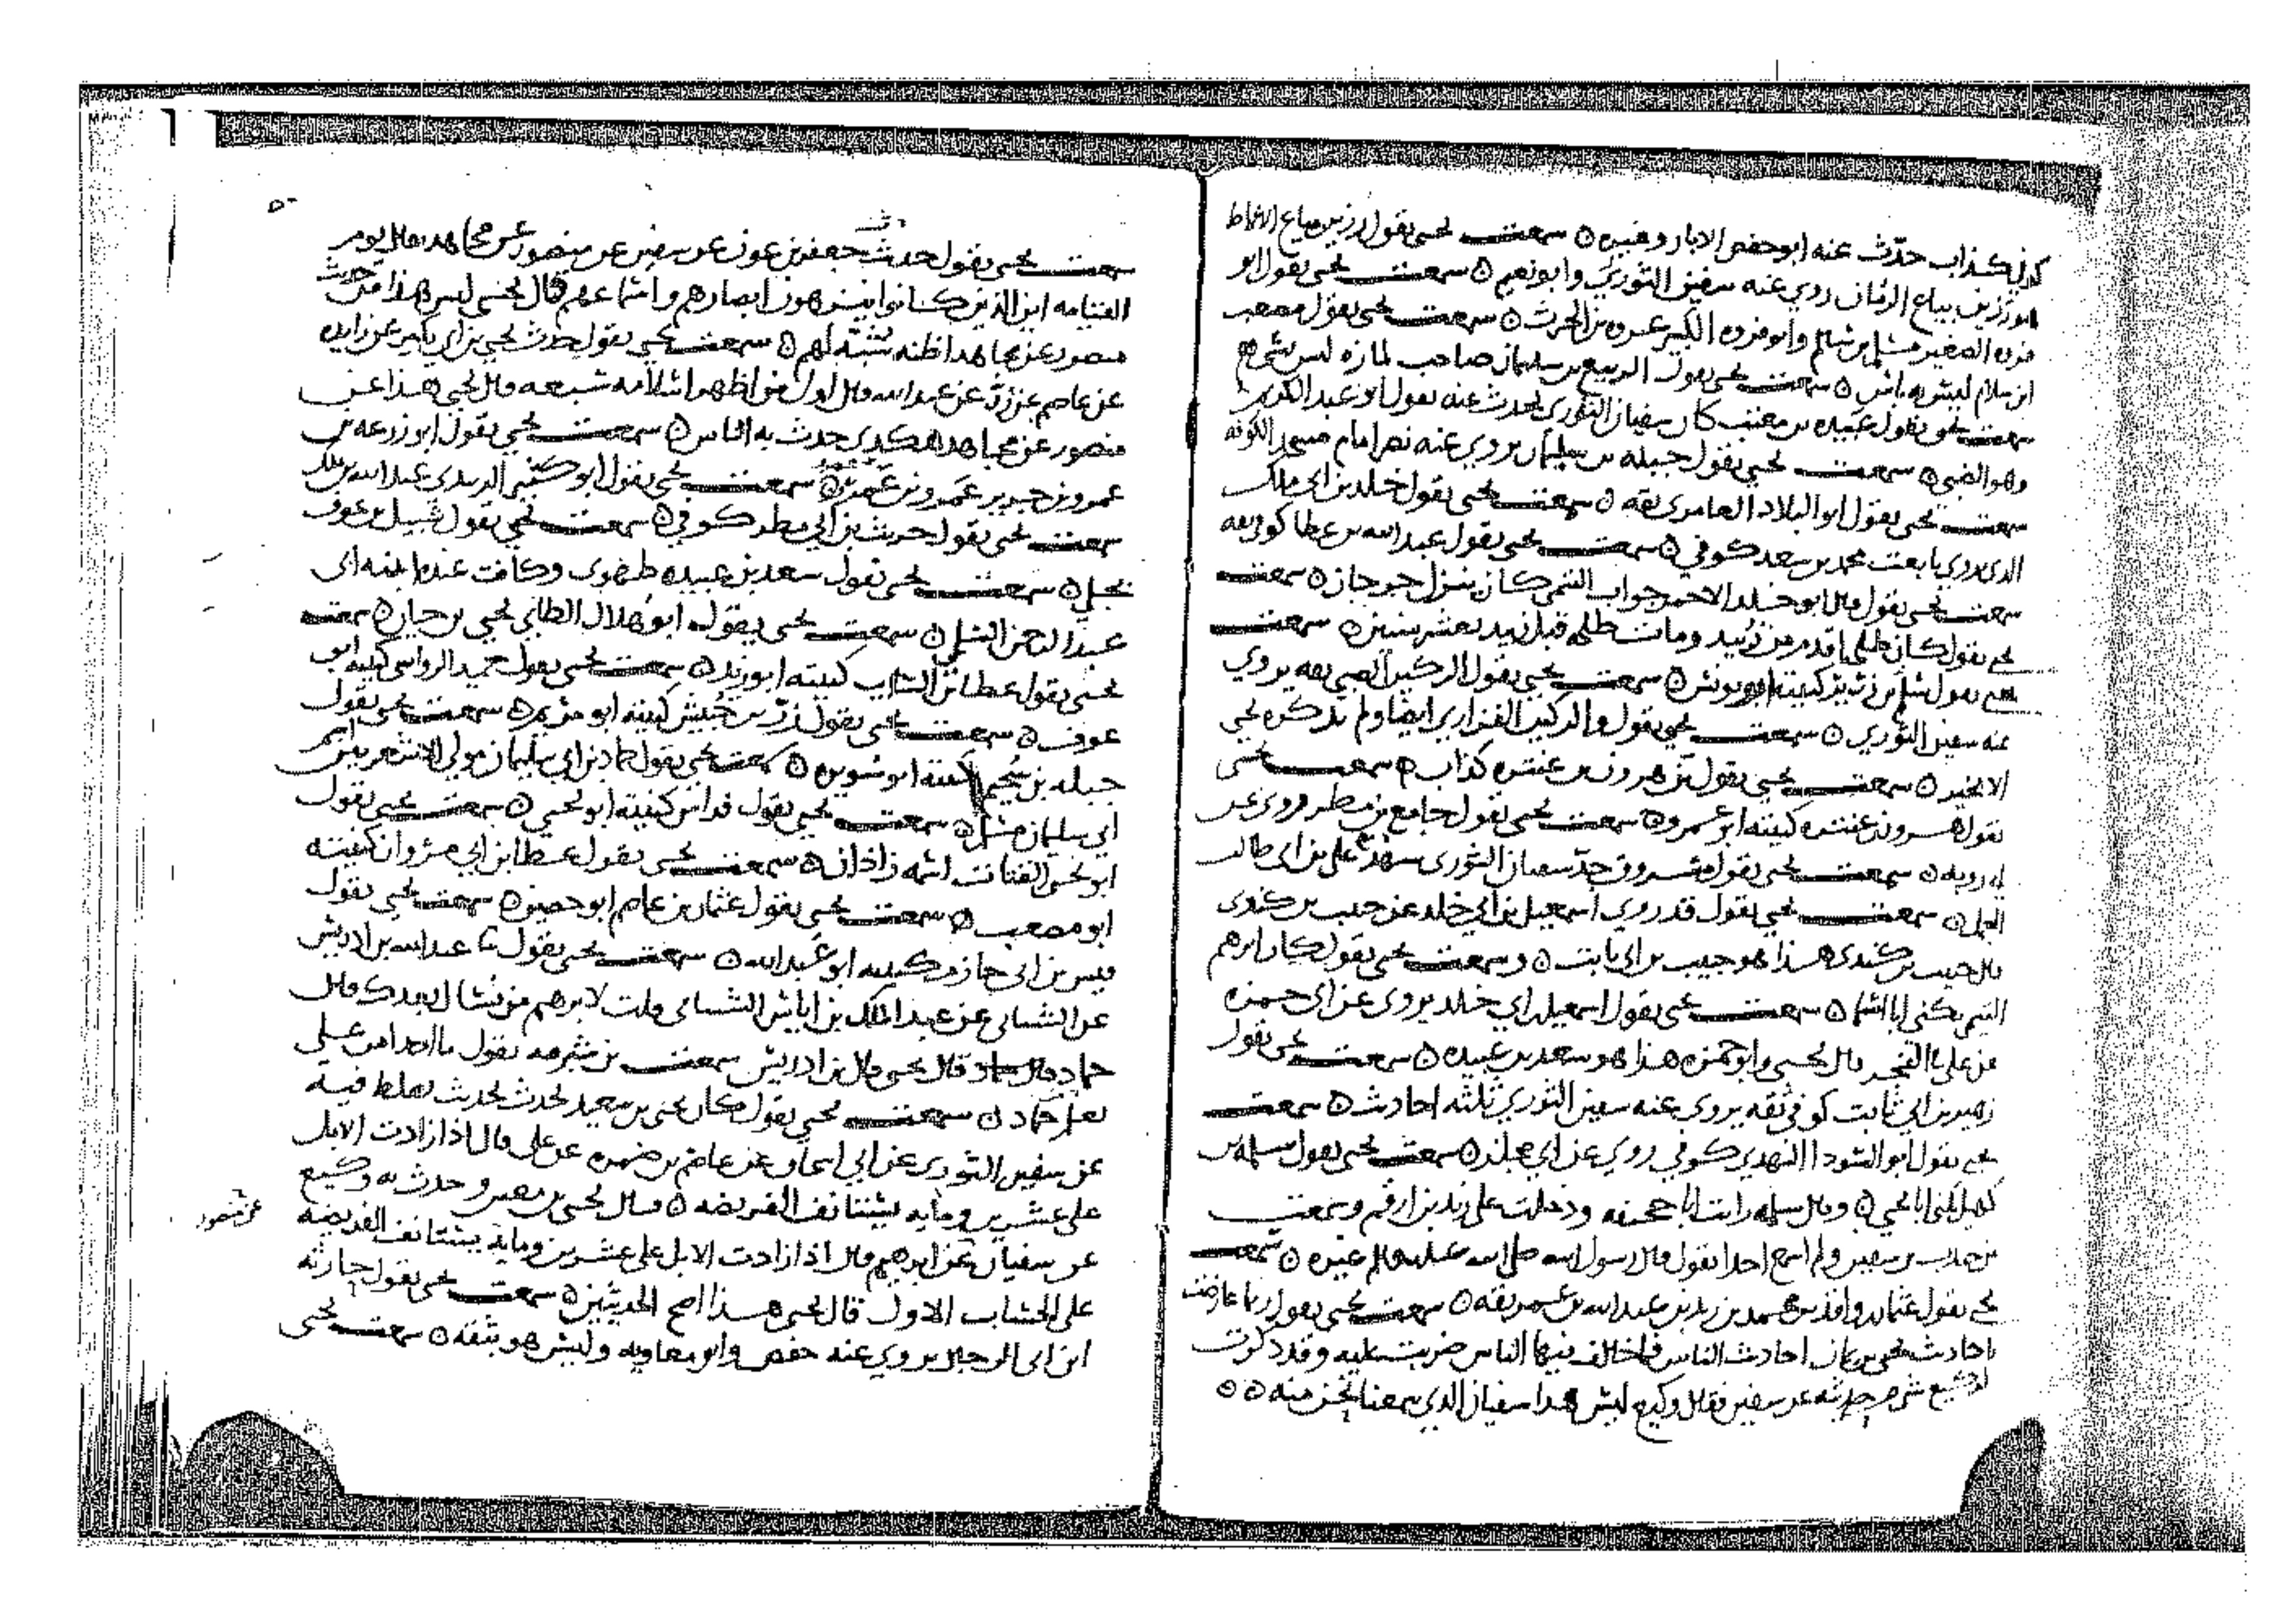 كوفي كذاب حدث عنه ابو حفص الابار وغيره ٥ سمعت يحيى يقول رزين بياع الانماط
ابو رزين بياع الرمان روى عنه سفين الثوري وابو نعيم ٥ سمعت يحيى يقول ابو
فروه الصغير مسلم بن سالم وابو فروه الكبير عروه بن الحرث ٥ سمعت يحيى يقول مصعب
ابن سلام ليس به باس ٥ سمعت يحيى يقول الربيع بن سليمان صاحب لمازه ليس بشي
سمعت يحيى يقول عبيده بن معتب كان سفيان الثوري يحدث عنه يقول ابو عبد الكريم
وهو الضبي ٥ سمعت يحيى يقول جبيله بن سليمان يروي عنه نصر امام مسجد الكوفه
سمعت يحيى يقول ابو البلاد العامري ثقه ٥ سمعت يحيى يقول خلد بن ابي ملك
الذي يروي بايعت محمد بن سعد كوفي ٥ سمعت يحيى يقول عبد الله بن عطا كوفي ثقه
سمعت يحيى يقول قال ابو خلد الاحمر جواب التيمي كان ينزل جرجان ٥ سمعت
يحيى يقول كان طلحه اقدم من زبيد ومات طلحه قبل زبيد بعشر سنين ٥ سمعت
يحيى يقول سلم بن زرير كنيته ابو يونس ٥ سمعت يحيى يقول الركين الضبي ثقه يروي
عنه سفين الثوري ٥ سمعت يحيى يقول والركين الفزاري ايضا ولم يذكره يحيى
الا بخير ٥ سمعت يحيى يقول بن هرون بن عنتره كذاب ٥ سمعت يحيى
يقول هرون بن عنتره كنيته ابو عمرو ٥ سمعت يحيى يقول جامع بن مطر يروي عن
ابي رويه ٥ سمعت يحيى يقول مسروق جد سفيان الثوري شهد مع علي بن ابي طالب
الجمل ٥ سمعت يحيى يقول قد روى اسمعيل بن ابي خلد عن حبيب بن كندى
قال حبيب بن كندى هذا هو حبيب بن ابي ثابت ٥ وسمعت يحيى يقول كان ابرهيم
التيمي يكنى ابا اسما ٥ سمعت يحيى يقول اسمعيل بن ابي خلد يروي عن ابي حمزه
عن علي قال يحيى وابو حمزه هذا هو سعد بن عبيده ٥ سمعت يحيى يقول
زهير بن ابي ثابت كوفي ثقه يروي عنه سفين الثوري ثلثه احاديث ٥ سمعت
يحيى يقول ابو السودا النهدي كوفي روى عن ابي مجلز ٥ سمعت يحيى يقول سلمه بن
كهيل يكنى ابا يحيى ٥ وقال سلمه رايت ابا جحيفه ودخلت على زيد بن ارقم وسمعت
من جندب بن سفين ولم اسمع احدا يقول قال رسول الله صلى الله عليه وسلم غيره ٥ سمعت
يحيى يقول عثمان بن واقد بن محمد بن زيد بن عبد الله بن عمر ثقه ٥ سمعت يحيى يقول ربما عارضت
باحاديث يحيى بن يمان احاديث الناس فما خالف فيها الناس ضربت عليه وقد ذكرت
لوكيع شي من حديثه عن سفين فقال وكيع ليس هذا سفيان الذي سمعنا نحن منه ٥ ٥
سمعت يحيى يقول حدث جعفر بن عون عن سفين عن منصور عن مجاهد قال يوم
القيامه اين الذين كانوا ينزهون ابصارهم واسماعهم قال يحيى ليس هذا من حديث
منصور عن مجاهد اظنه شبه لهم ٥ سمعت يحيى يقول حدث يحيى بن ابي بكير عن زايده
عن عاصم عن زر عن عبد الله قال اول من اظهر اسلامه سبعه قال يحيى هذا عن
منصور عن مجاهد هكذى حدث به الناس ٥ سمعت يحيى يقول ابو زرعه بن
عمرو بن جرير عمرو بن عمرو ٥ سمعت يحيى يقول ابو كثير الزبيدي عبد الله بن ملك
سمعت يحيى يقول حريث بن ابي مطر كوفي ٥ سمعت يحيى يقول شبيل بن عوف
بجلي ٥ سمعت يحيى يقول سعد بن عبيده طهوي وكانت عنده ابنه ابي
عبد الرحمن السلمي ٥ سمعت يحيى يقول ابو هلال الطائي يحيى بن حيان ٥ سمعت
يحيى يقول عطا بن السايب كنيته ابو زيد ٥ سمعت يحيى يقول حميد الرواسي كنيته ابو
عوف ٥ سمعت يحيى يقول زر بن حبيش كنيته ابو مريم ٥ سمعت يحيى يقول
جبله بن سحيم كنيته ابو سويره ٥ سمعت يحيى يقول حماد بن ابي سليمان مولى الاشعريين اسم
ابي سليمان مسلم ٥ سمعت يحيى يقول فراس كنيته ابو يحيى ٥ سمعت يحيى يقول
ابو يحيى القتات اسمه زاذان ٥ سمعت يحيى يقول عطا بن ابي مروان كنيته
ابو مصعب ٥ سمعت يحيى يقول عثمان بن عاصم ابو حصين ٥ سمعت يحيى يقول
قيس بن ابي حازم كنيته ابو عبد الله ٥ سمعت يحيى يقول نا عبد الله بن ادريس
عن الشيباني عن عبد الملك بن اياس الشيباني قلت لابرهيم من نسال بعدك قال
حماد قال يحيى قال بن ادريس سمعت بن شبرمه يقول ما احد امن علي
بعلم من حماد ٥ سمعت يحيى يقول كان يحيى بن سعيد يحدث بحديث يغلط فيه
عن سفين الثوري عن ابي اسحاق عن عاصم بن ضمره عن علي قال اذا زادت الابل
على عشرين ومايه يستانف الفريضه ٥ قال يحيى بن معين وحدث به وكيع
عن سفيان عن ابرهيم قال اذا زادت الابل على عشرين ومايه يستانف الفريضه
عن منصور
على الحساب الاول قال يحيى هذا اصح الحديثين ٥ سمعت يحيى يقول حارثه
ابن ابي الرجال يروي عنه حفص وابو معاويه وليس هو بثقه ٥ سمعت يحيى